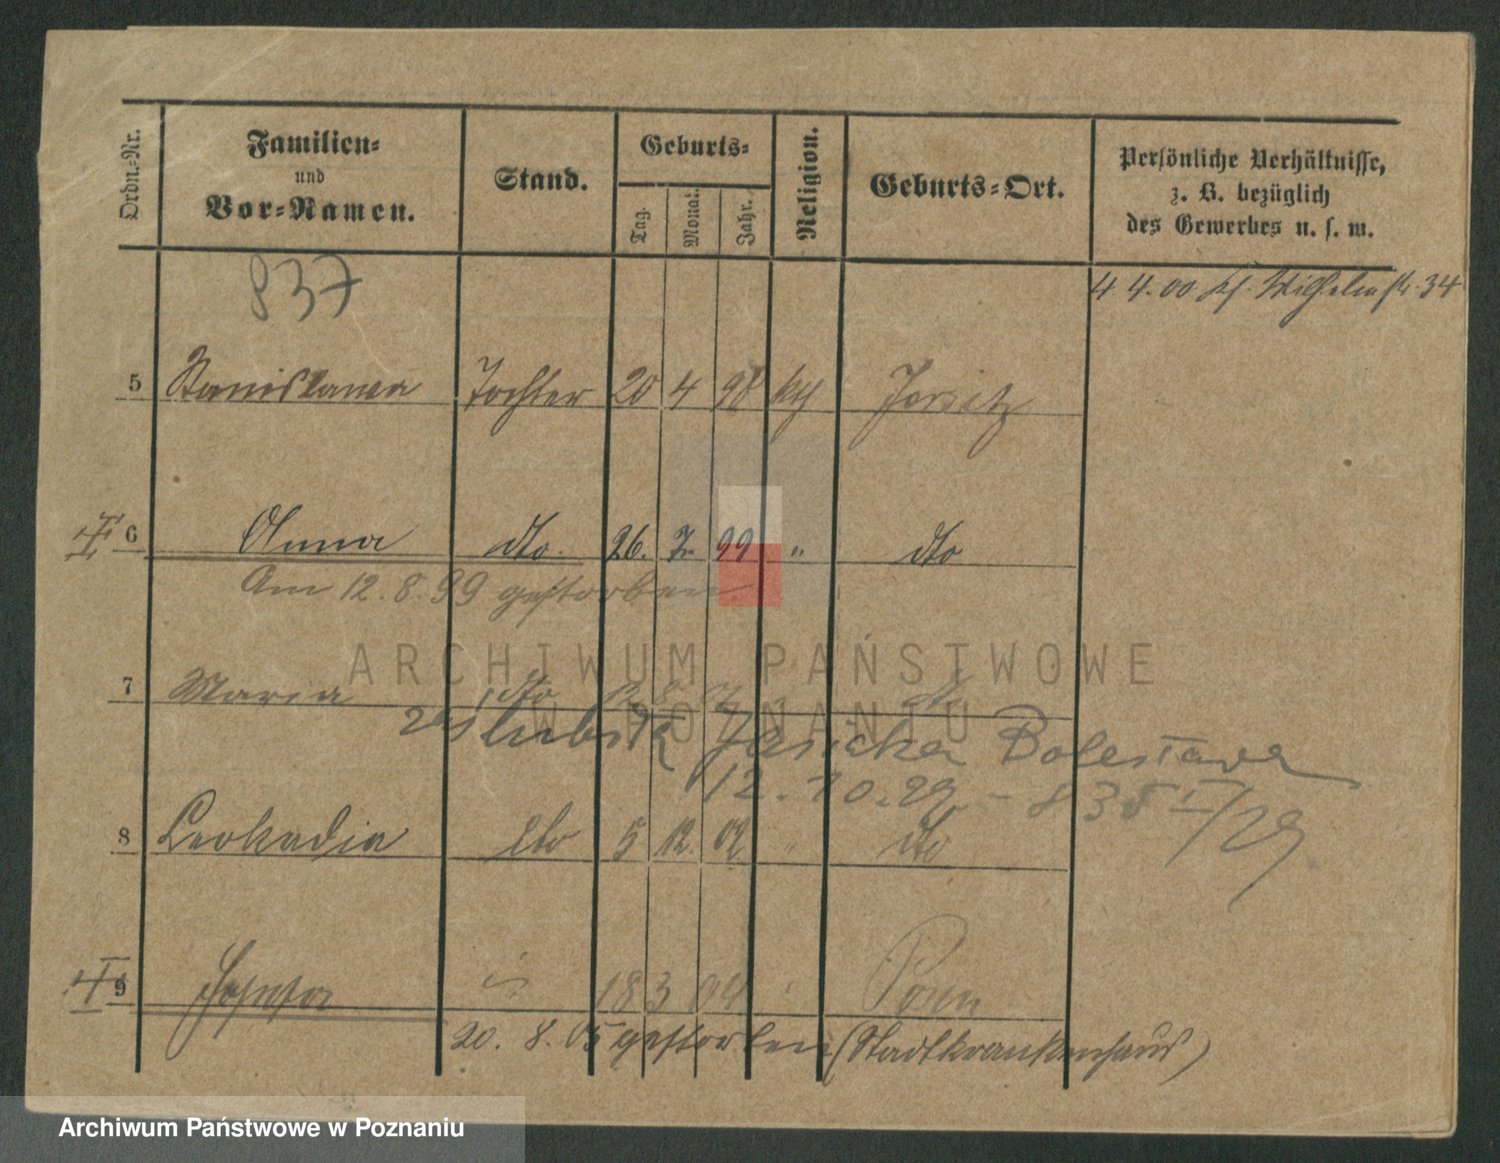 Ordn.-Nr.
Familien-
und
Vor-Namen.
Stand.
Geburts-
Tag.
Monat.
Jahr.
Religion.
Geburts-Ort.
Persönliche Verhältnisse,
z. B. bezüglich
des Gewerbes u. s. w.
837
4. 4. 00 Wilhelmstr. 34
5 Stanislawa Tochter 20 4 98 kth Jersitz
6 Anna dto. 26. 7. 99 " dto
Am 12. 8. 99 gestorben.
ARCHIWUM PAŃSTWOWE
W POZNANIU
7 Maria dto 12 8
zaślubiła Bolesława
12. 10. 29. - 838 I/29.
8 Leokadia dto 5 12. 02 " dto
9 Josefa 18 3 04 Posen
20. 8. 05 gestorben (Stadtkrankenhaus)
Archiwum Państwowe w Poznaniu